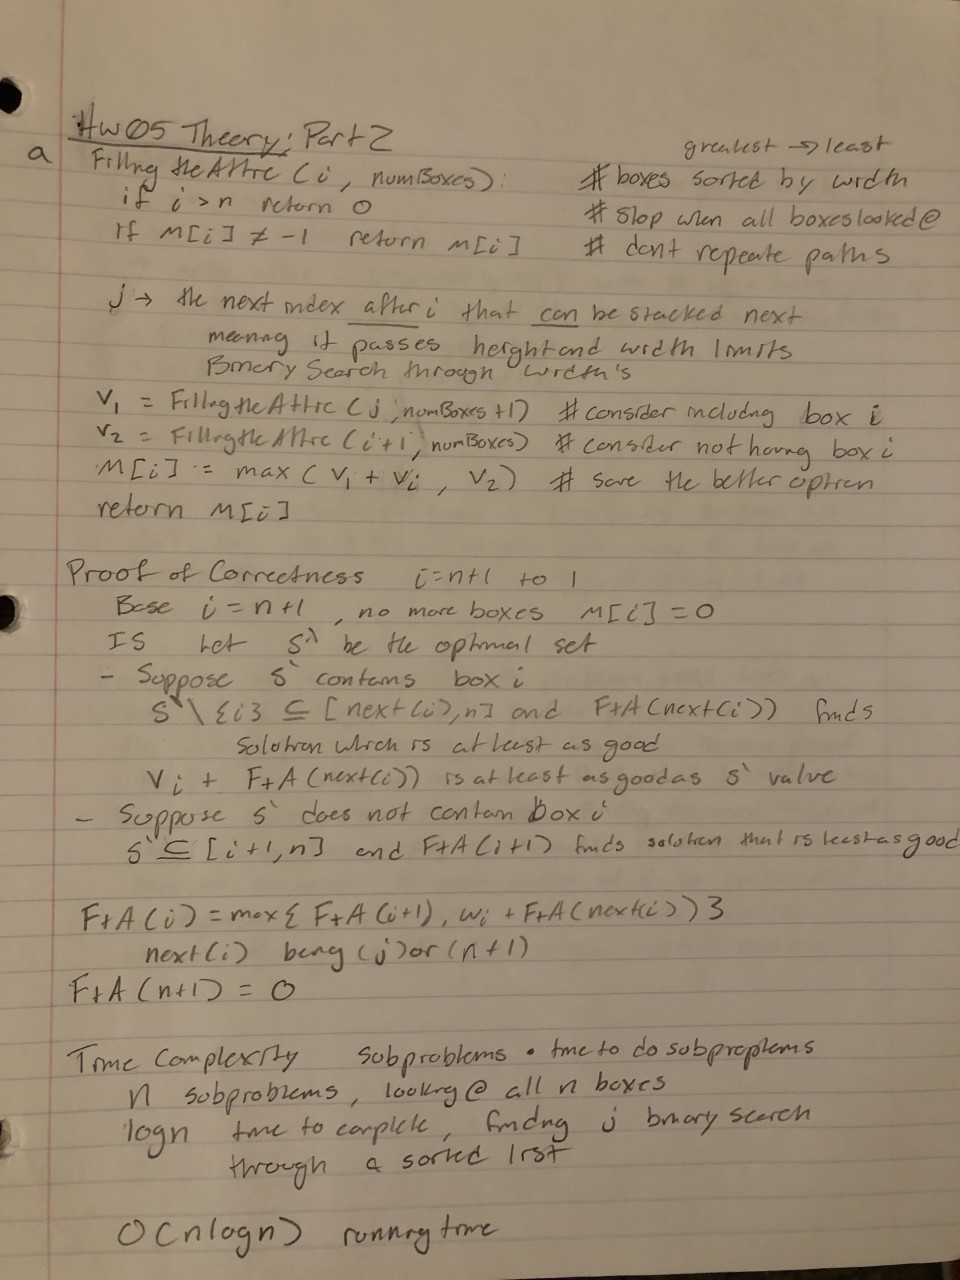 HW05 Theory: Part 2
greatest → least
a Filling the Attic (i, numBoxes): # boxes sorted by width
if i > n return 0 # Stop when all boxes looked @
If M[i] ≠ -1 return M[i] # dont repeate paths
j → the next index after i that can be stacked next
meaning it passes height and width limits
Binary Search through width's
V₁ = Filling the Attic (j, numBoxes +1) # consider including box i
V₂ = Filling the Attic (i+1, numBoxes) # consider not having box i
M[i] := max (V₁ + Vᵢ, V₂) # save the better option
return M[i]
Proof of Correctness i=n+1 to 1
Base i = n+1, no more boxes M[i] = 0
IS Let S` be the optimal set
- Suppose S` contains box i
S`\{i} ⊆ [next(i), n] and FtA(next(i)) finds
Solution which is at least as good
Vᵢ + FtA(next(i)) is at least as good as S` value
- Suppose S` does not contain box i
S` ⊆ [i+1, n] and FtA(i+1) finds solution that is least as good
FtA(i) = max{ FtA(i+1), wᵢ + FtA(next(i)) }
next(i) being (j) or (n+1)
FtA(n+1) = 0
Time Complexity Subproblems • time to do subproplems
n subproblems, looking @ all n boxes
logn time to complete, finding j binary search
through a sorted list
O(nlogn) running time